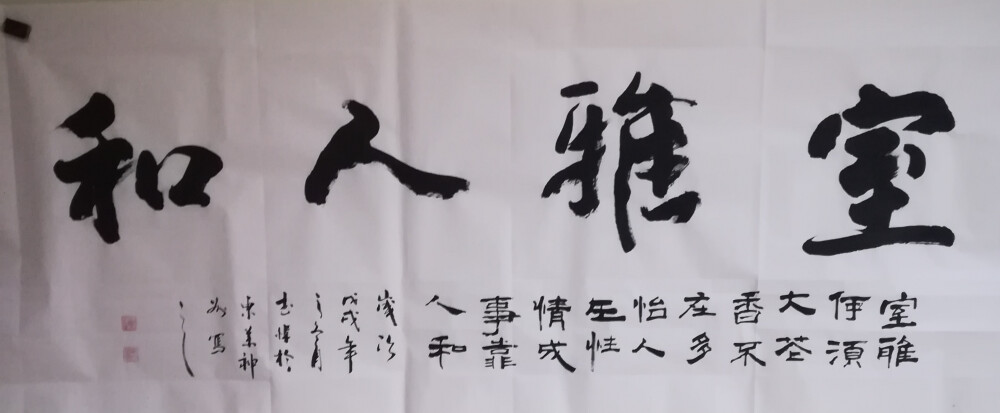 室雅人和
室雅
何須
大花
香不
在多
怡人
在性
情成
事靠
人和
歲次
戊戌年